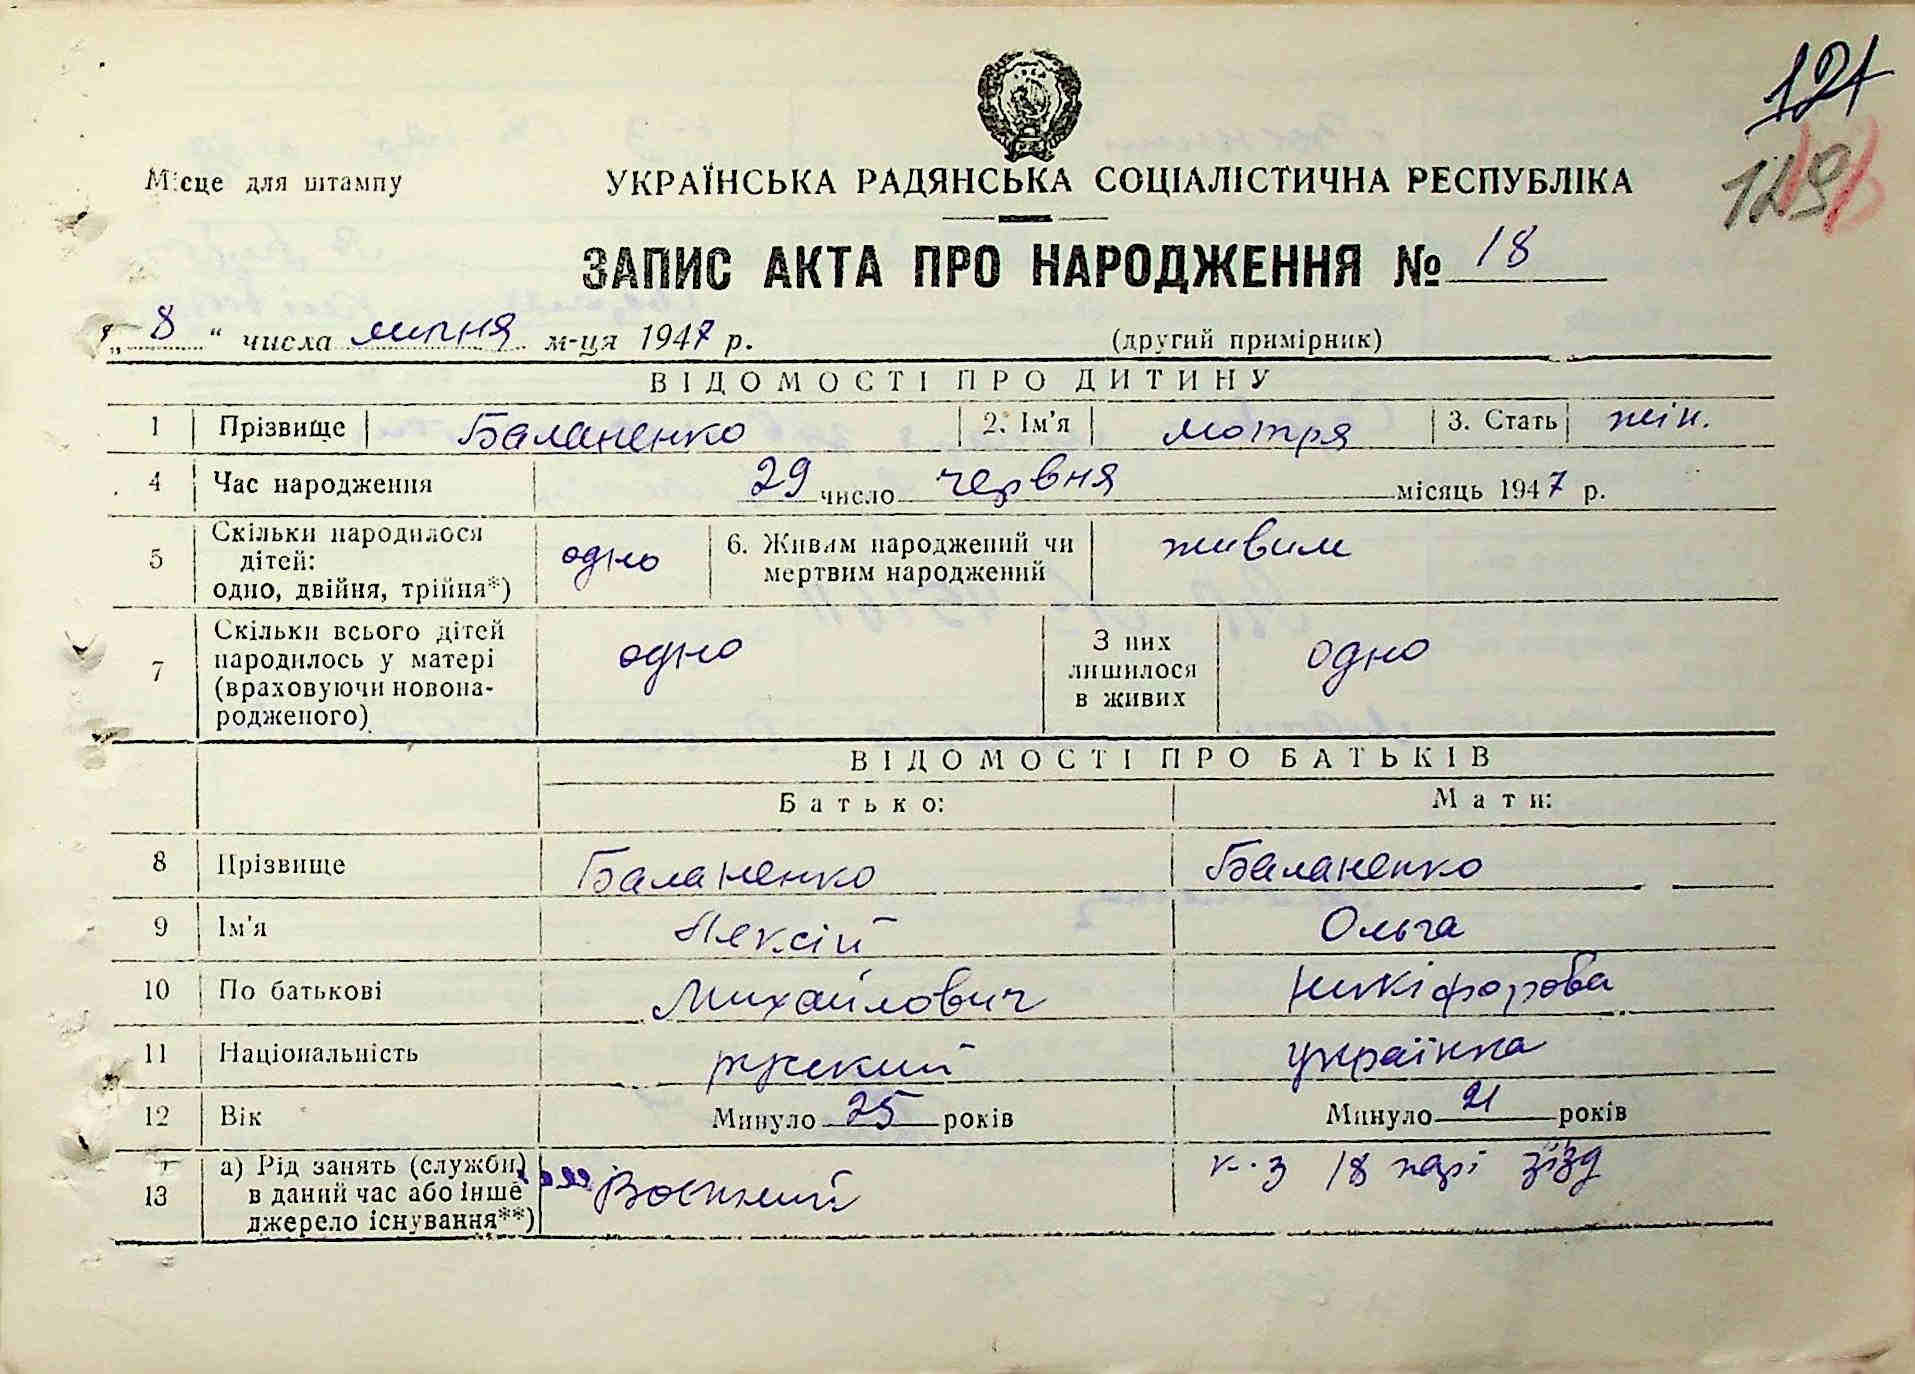 121
129
Місце для штампу
УКРАЇНСЬКА РАДЯНСЬКА СОЦІАЛІСТИЧНА РЕСПУБЛІКА
ЗАПИС АКТА ПРО НАРОДЖЕННЯ № 18
„ 8 “ числа липня м-ця 1947 р. (другий примірник)
ВІДОМОСТІ ПРО ДИТИНУ
1 Прізвище Баланенко 2. Ім'я Мотря 3. Стать жін.
4 Час народження 29 число червня місяць 1947 р.
5 Скільки народилося дітей: одно, двійня, трійня*) одно 6. Живим народжений чи мертвим народжений живим
7 Скільки всього дітей народилось у матері (враховуючи новонародженого) одно З них лишилося в живих одно
ВІДОМОСТІ ПРО БАТЬКІВ
Батько: Мати:
8 Прізвище Баланенко Баланенко
9 Ім'я Алексій Ольга
10 По батькові Михайлович Никіфорова
11 Національність руский українка
12 Вік Минуло 25 років Минуло 21 років
13 а) Рід занять (служби) в даний час або інше джерело існування**) Воєнний к-з 18 парт зїзд